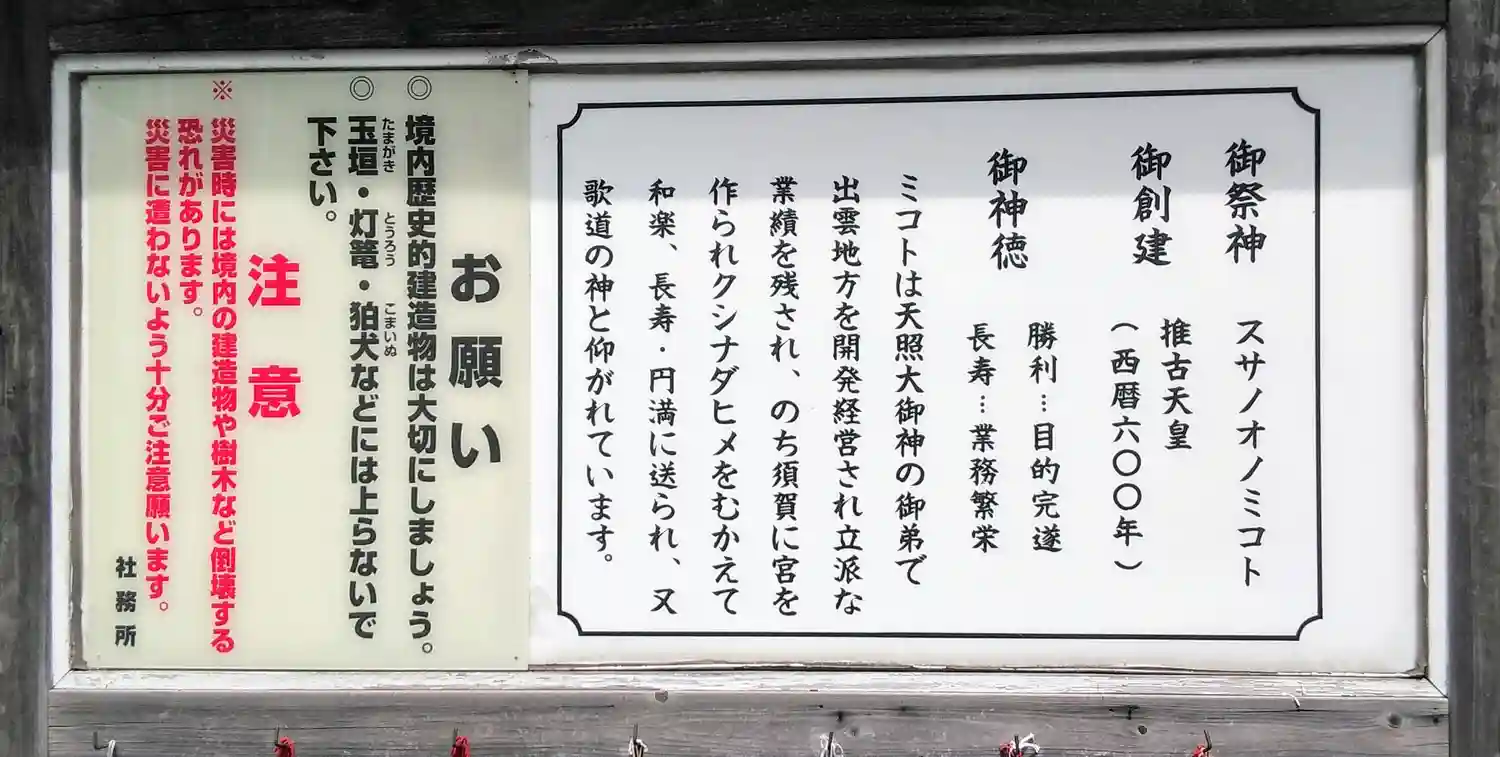 御祭神 スサノオノミコト
御創建 推古天皇
(西暦六〇〇年)
御神徳 勝利…目的完遂
長寿…業務繁栄
ミコトは天照大御神の御弟で
出雲地方を開発経営され立派な
業績を残され、のち須賀に宮を
作られクシナダヒメをむかえて
和楽、長寿・円満に送られ、又
歌道の神と仰がれています。
お願い
◎境内歴史的建造物は大切にしましょう。
◎玉垣・灯篭・狛犬などには上らないで
たまがき とうろう こまいぬ
下さい。
注意
※災害時には境内の建造物や樹木など倒壊する
恐れがあります。
災害に遭わないよう十分ご注意願います。
社務所